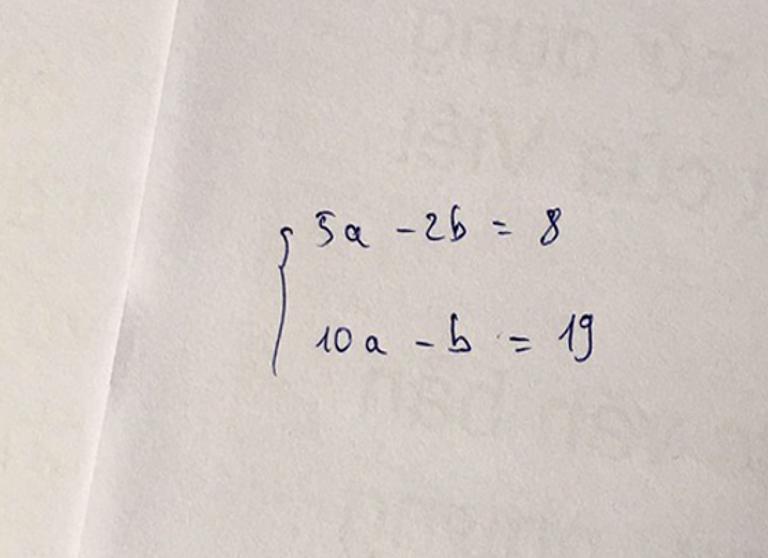 5a - 2b = 8
10a - b = 19